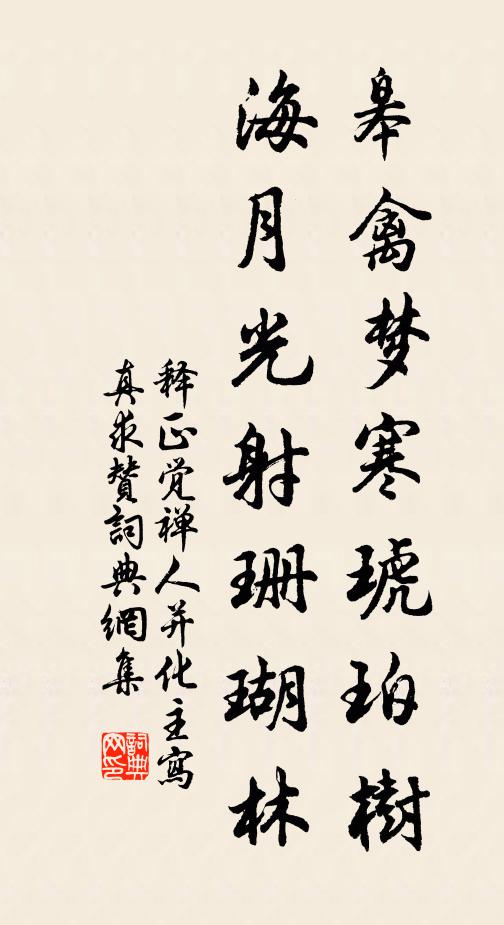 皋禽梦寒琥珀樹
海月光射珊瑚林
释正觉禅人并化主寫
真求贊詞典網集
詞典网印